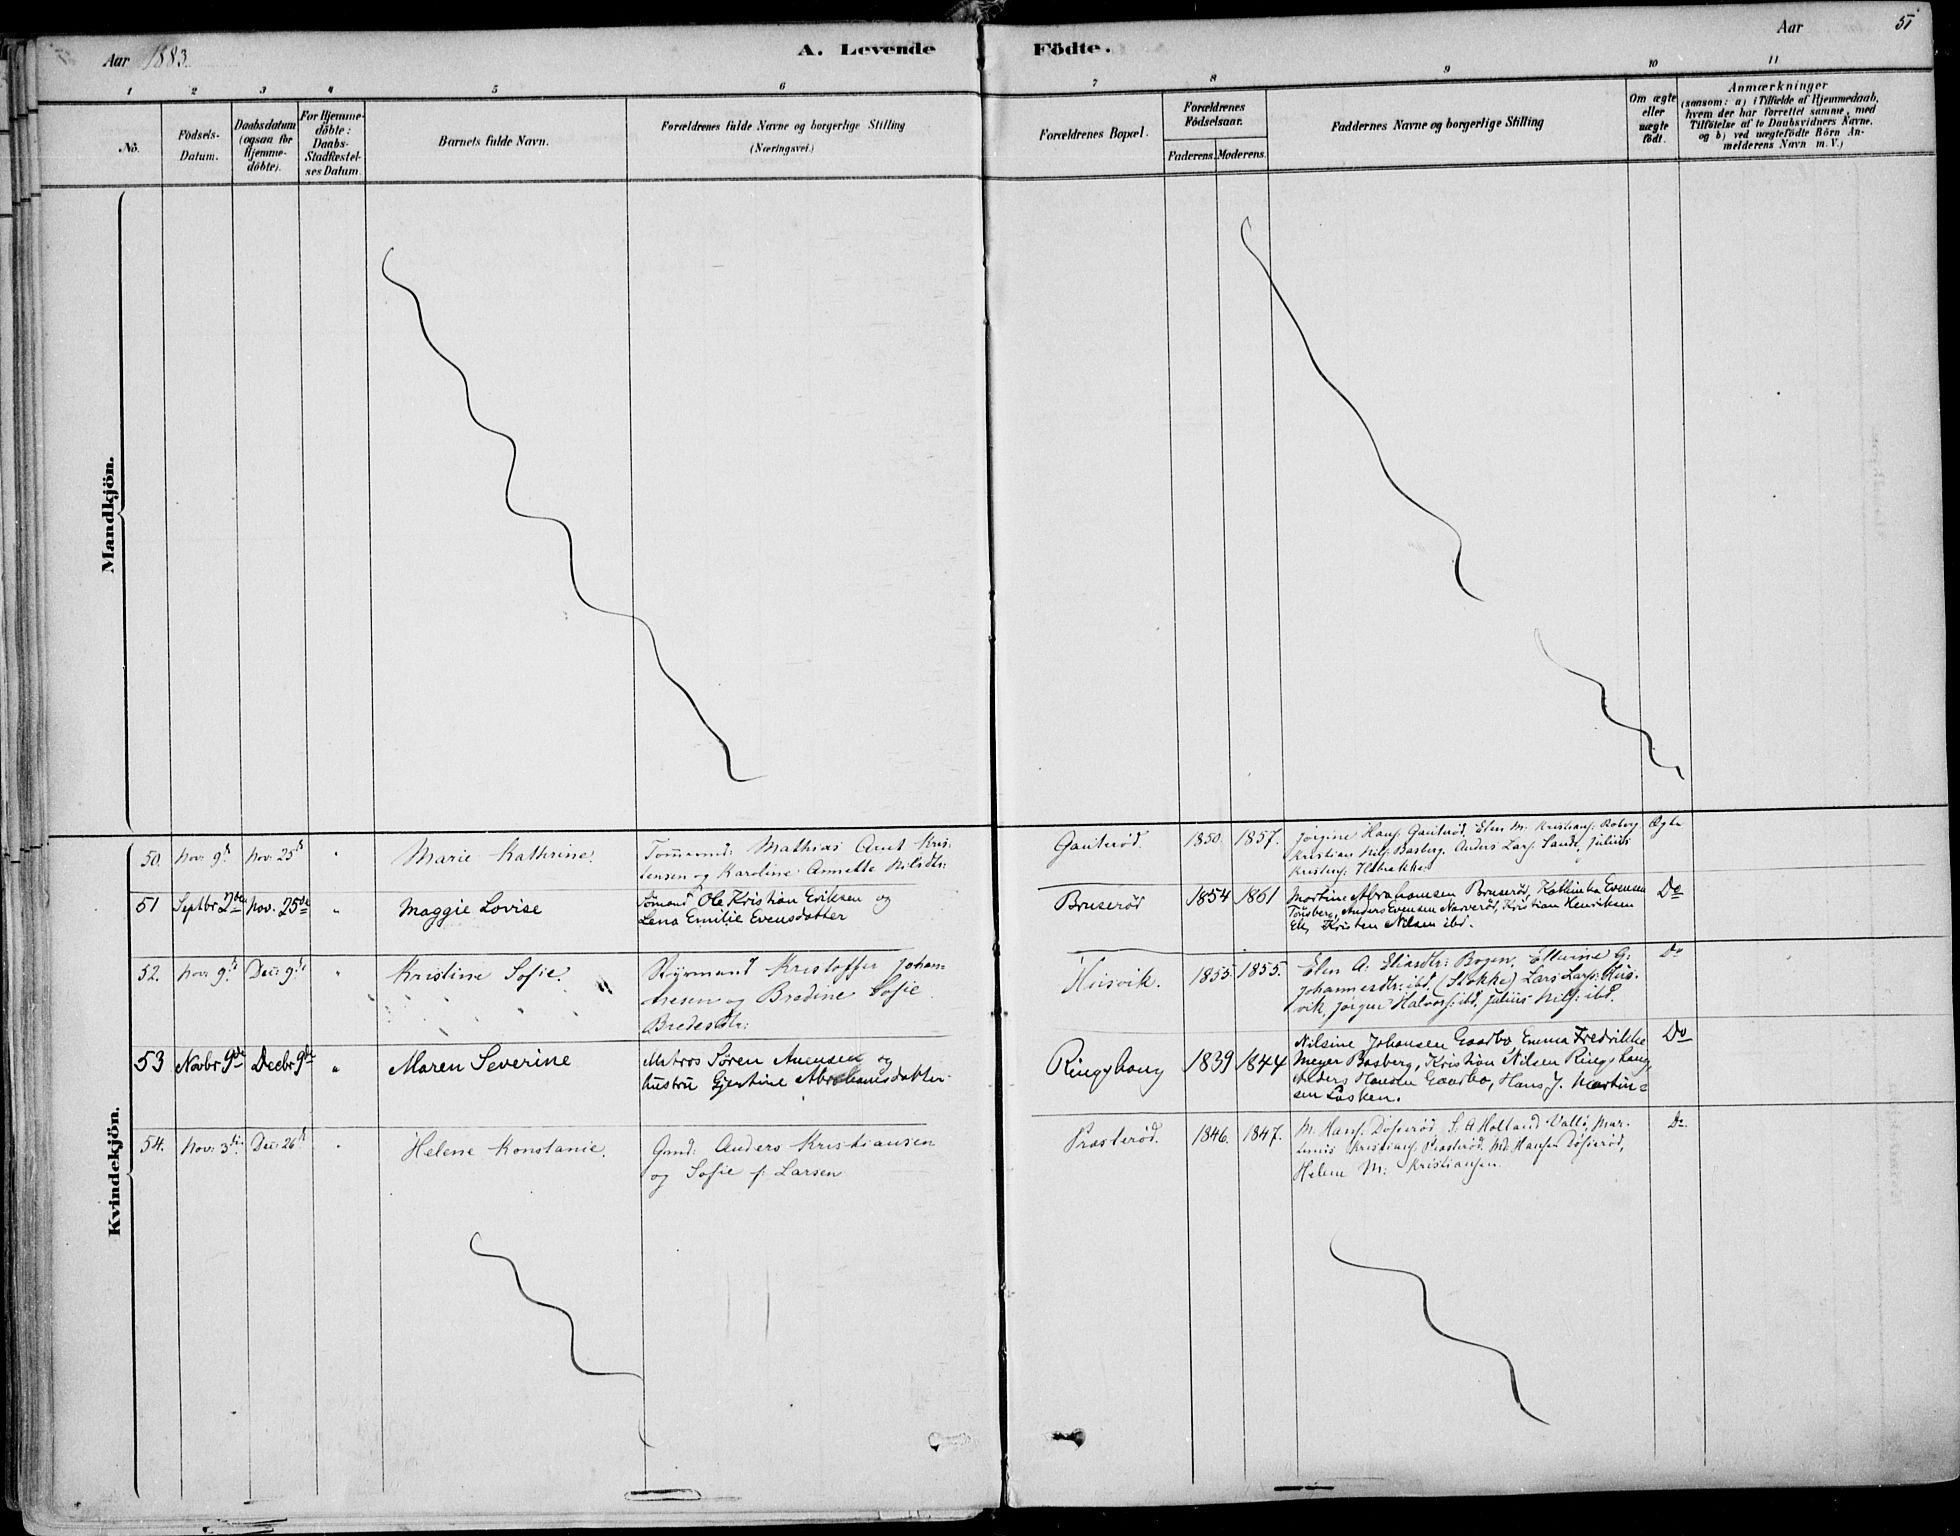 Aar 1883.
A. Levende Födte.
Aar
51
1 2 3 4 5 6 7 8 9 10 11
No.
Födsels-Datum.
Daabsdatum (ogsaa for Hjemme-döbte).
For Hjemme-döbte: Daabs-Stadfæstel-ses Datum.
Barnets fulde Navn.
Forældrenes fulde Navne og borgerlige Stilling
(Næringsvei.)
Forældrenes Bopæl.
Forældrenes Födselsaar.
Faderens. Moderens.
Faddernes Navne og borgerlige Stilling
Om ægte eller uægte födt.
Anmærkninger
(saasom: a) i Tilfælde af Hjemmedaab,
hvem der har forrettet samme, med
Tilföielse af to Daabsvidners Navne,
og b) ved uægtefödte Börn An-
melderens Navn m. V.)
Mandkjön.
Kvindekjön.
50. Nov: 9de Nov: 25de " Marie Kathrine.
Tömmermd: Mathias Arnt Kris-
tensen og Karoline Annette Nilsdtr:
Gauterød. 1850. 1857.
Jørgine Hans: Gauterød, Elen M. Kristians: Roberg
Kristian Nils: Basberg. Anders Lars: Sande, Julius
Ægte
51 Septbr 2den Nov. 25de " Maggie Lovise
Sömand Ole Kristian Eriksen og
Lena Emilie Evensdatter
Bruserød 1854 1861
Martine Abrahamsen Bruserød, Kathinka Evensen
Tönsberg, Anders Evensen Narverød, Kristian Henriksen
Ek, Kristen Nilsen ibd.
Do
52. Nov: 9de Dec: 9de " Kristine Sofie.
Styrmand Kristoffer Johan-
nesen og Bredine Sofie
Bredesdtr:
Husvik. 1855 1855.
Elen A: Eliasdtr: Bogen, Ellvine G:
Johannesdtr: ibd, (Stokke) Lars Lars: Hus-
vik, Jørgen Halvors: ibd, Julius Nils: ibd.
Do
53 Novbr 9de Decbr 9de " Maren Severine
Matros Sören Anensen og
hustru Gjertine Abrahamsdatter
Ringshaug 1839 1844
Nilsine Johansen Gaarbo Emma Fredrikke
Meyer Basberg, Kristian Nilsen Ringshaug,
Anders Hansen Gaarbo, Hans J. Martin=
sen Løsken.
Do
54. Nov: 3die Dec: 26de " Helene Konstanie.
Gmd: Anders Kristiansen
og Sofie f: Larsen
Præsterød. 1846. 1847.
M. Hans:
Kristians: Præsterød.
Helene M: Kristiansen.
Do